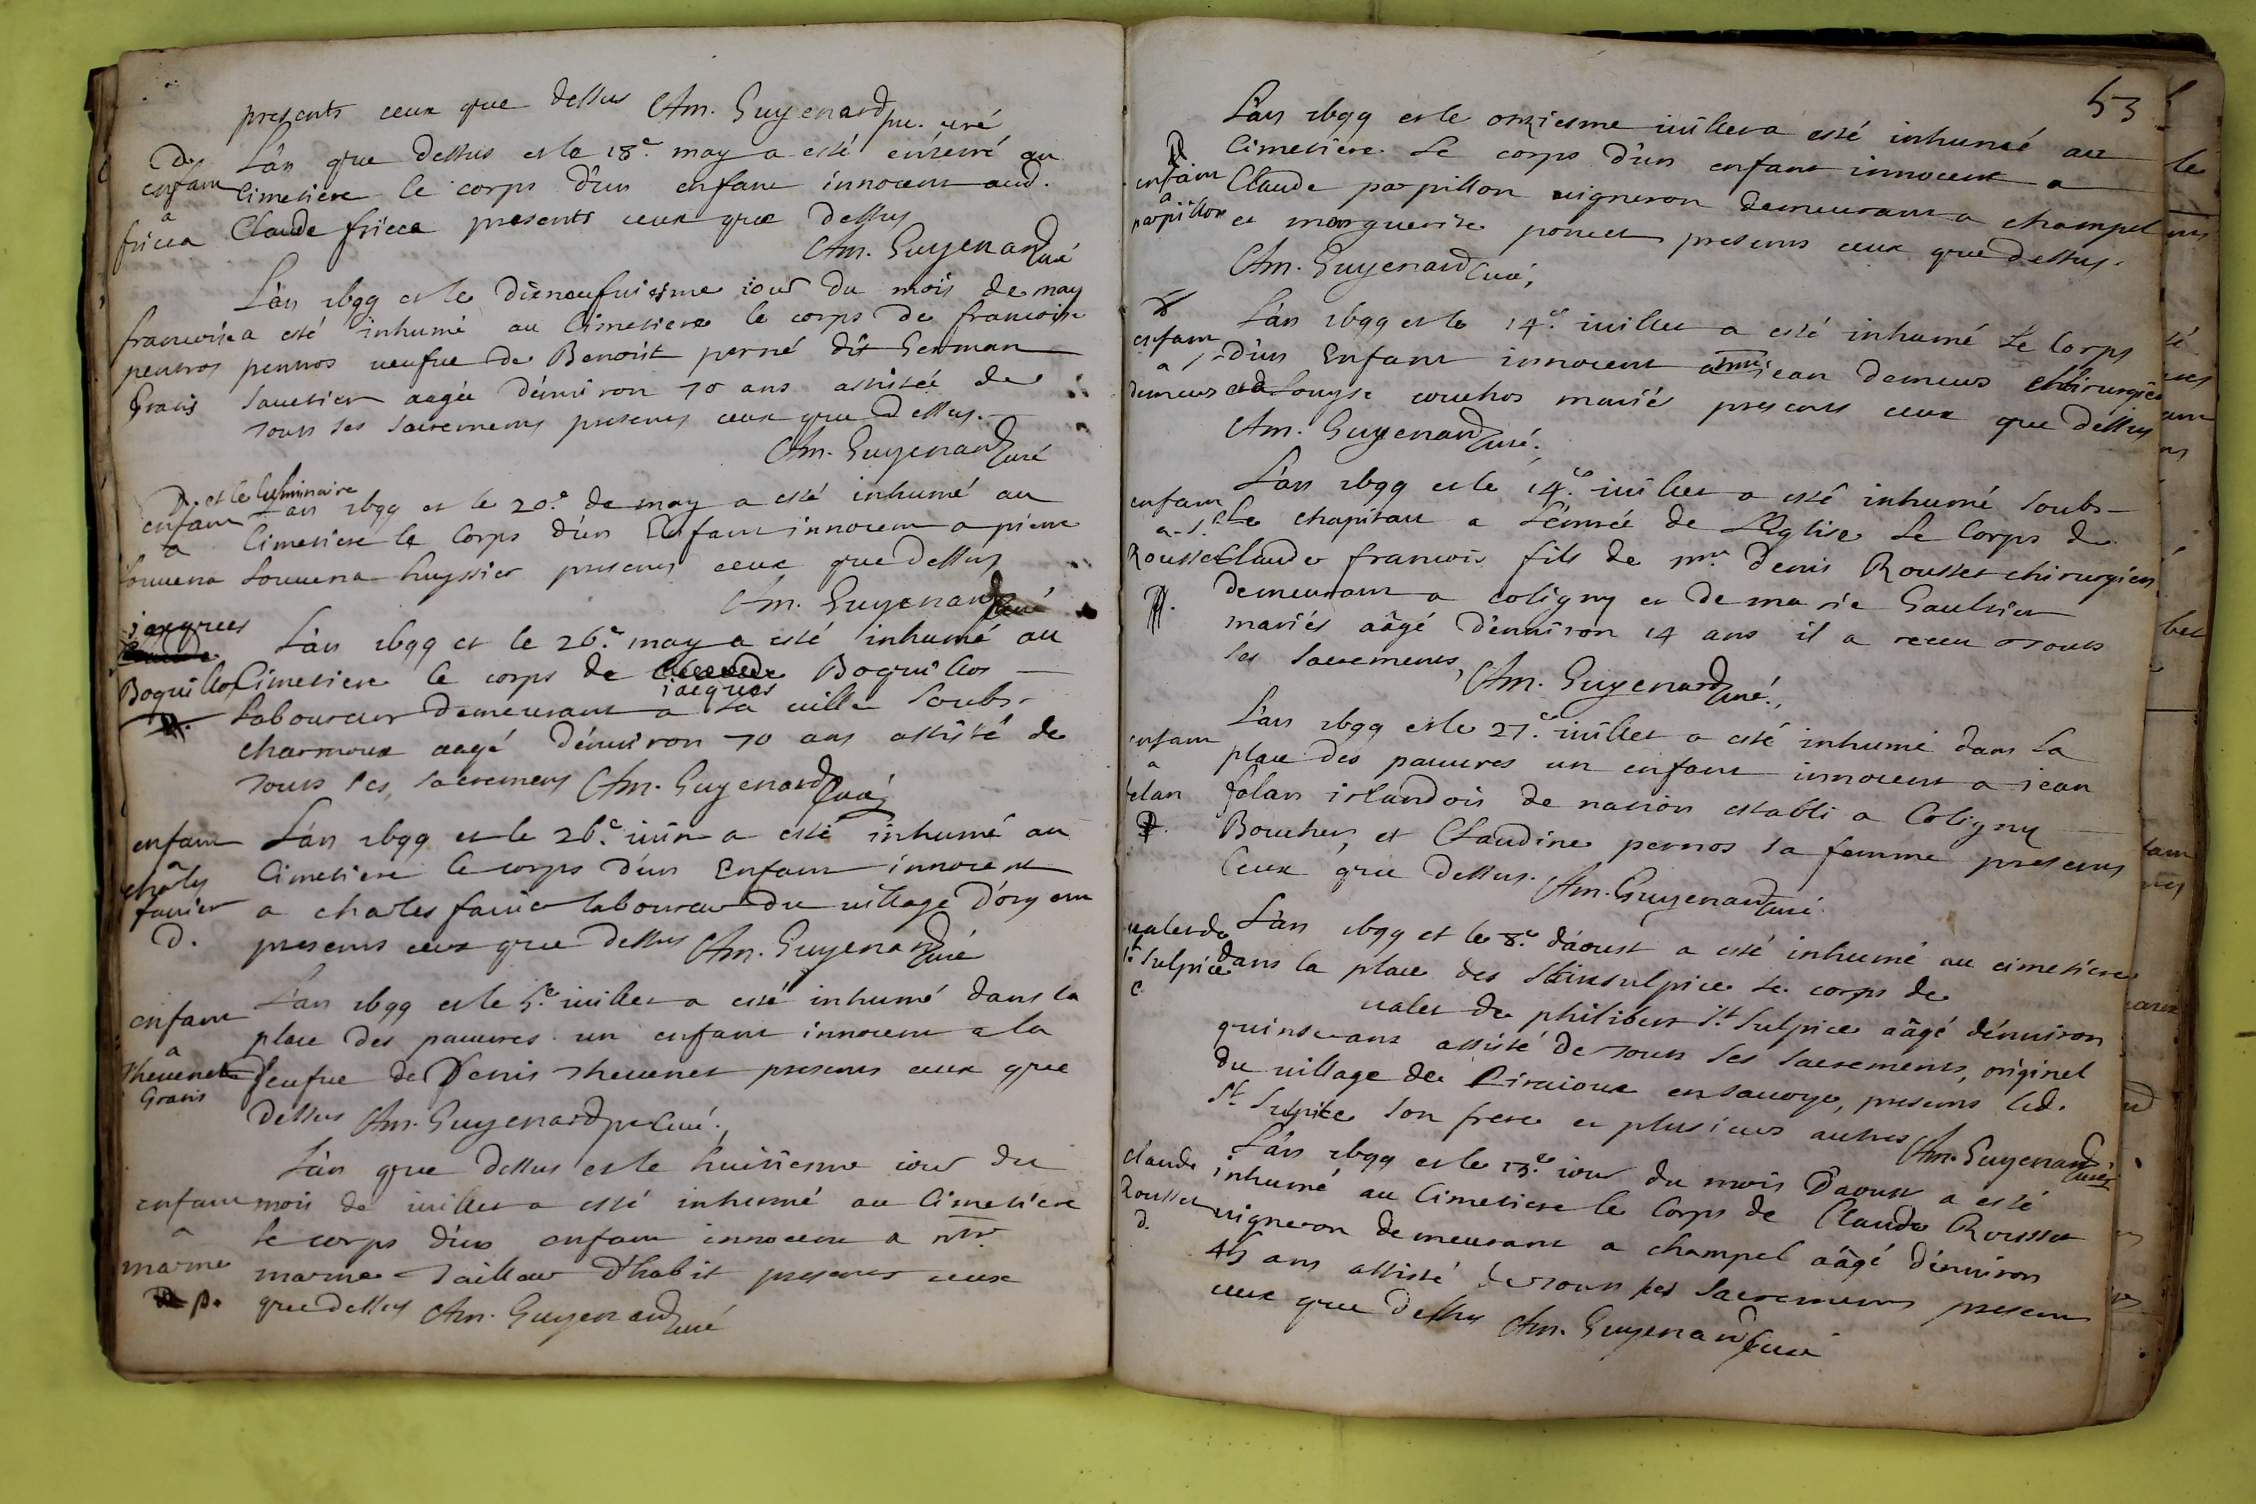 presents ceux que dessus Am. Guyenard pr. curé
D.
enfant
a
fricca
L'an que dessus et le 18.e may a esté enterré au
Cimetiere le corps d'un enfant innocent aud.
Claude fricca presents ceux que dessus
Am. Guyenard curé
francoise
pernos
Gratis
L'an 1699 et le dieneufuiesme iour du mois de may
a esté inhumé au Cimetiere le corps de francoise
pernos ueufue de Benoist perné dit German
sauetier aagée d'enuiron 70 ans assistée de
tous ses sacremens presens ceux que dessus.
Am. Guyenard curé
D. et le luminaire
enfant
a
L'an 1699 et le 20.e de may a esté inhumé au
Cimetiere le Corps d'un Enfant innocent a pierre
huyssier presens ceux que dessus
Am. Guyenard curé
jacques
Boquillos
L'an 1699 et le 26.e may a esté inhumé au
Cimetiere le corps de Boquillos
jacques
Laboureur demeurant a la uille soubs
charmoux aagé d'enuiron 70 ans assisté de
tous ses sacremens Am. Guyenard Curé
enfant
a
charles
fauier
D.
L'an 1699 et le 26.e iuin a esté inhumé au
Cimetiere le corps d'un Enfant innocent
a charles fauier laboureur du uillage d'
presens ceux que dessus Am. Guyenard Curé
enfant
a
Theuenet
Gratis
L'an 1699 et le 5.e iuillet a esté inhumé dans la
place des pauures un enfant innocent a la
Veufue de Denis Theuenet presens ceux que
dessus Am. Guyenard pr Curé.
enfant
a
marme
p.
L'an que dessus et le huitiesme iour du
mois de iuillet a esté inhumé au Cimetiere
le corps d'un enfant innocent a
marme Tailleur d'habit presens ceux
que dessus Am. Guyenard curé
53
D
enfant
a
papillon
L'an 1699 et le onziesme iuillet a esté inhumé au
Cimetiere. Le corps d'un enfant innocent a
Claude papillon uigneron demeurant a champel
et marguerite poncet presens ceux que dessus.
Am. Guyenard Curé,
enfant
a
demeus
L'an 1699 et le 14.e iuillet a esté inhumé Le Corps
d'un Enfant innocent a jean demeus chirurgien
et a Louyse couchos mariés presens ceux que dessus
Am. Guyenard curé.
enfant
a S.r
Rousset
L'an 1699 et le 14.e iuillet a esté inhumé soubs
Le chapitau a L'entrée de L'Eglise Le Corps de
Claude francois fils de Mr. Denis Rousset chirurgien
demeurant a coligny et de marie Gaultier
mariés aâgé d'enuiron 14 ans il a receu tous
les sacremens, Am. Guyenard curé.
enfant
a
folan
L'an 1699 et le 27.e iuillet a esté inhumé dans La
place des pauures un enfant innocent a jean
folan irlandois de nation establi a Coligny
Boucher, et Claudine pernos sa femme presens
Ceux que dessus. Am. Guyenard curé.
ualet de
St. Sulpice
c.
L'an 1699 et le 8.e d'aoust a esté inhumé au cimetiere
dans la place des Stinsulpice Le corps de
ualet de philibert St. Sulpice aâgé d'enuiron
quinse ans assisté de tous ses sacremens, originel
du uillage de en sauoye, presens led.
St. Sulpice son frere et plusieurs autres Am. Guyenard curé
claude
Rousset
d.
L'an 1699 et le 13.e iour du mois D'aoust a esté
inhumé au Cimetiere le Corps de Claude Rousset
uigneron demeurant a champel aâgé d'enuiron
45 ans assisté de tous ses Sacremens presens
ceux que dessus Am. Guyenard Curé